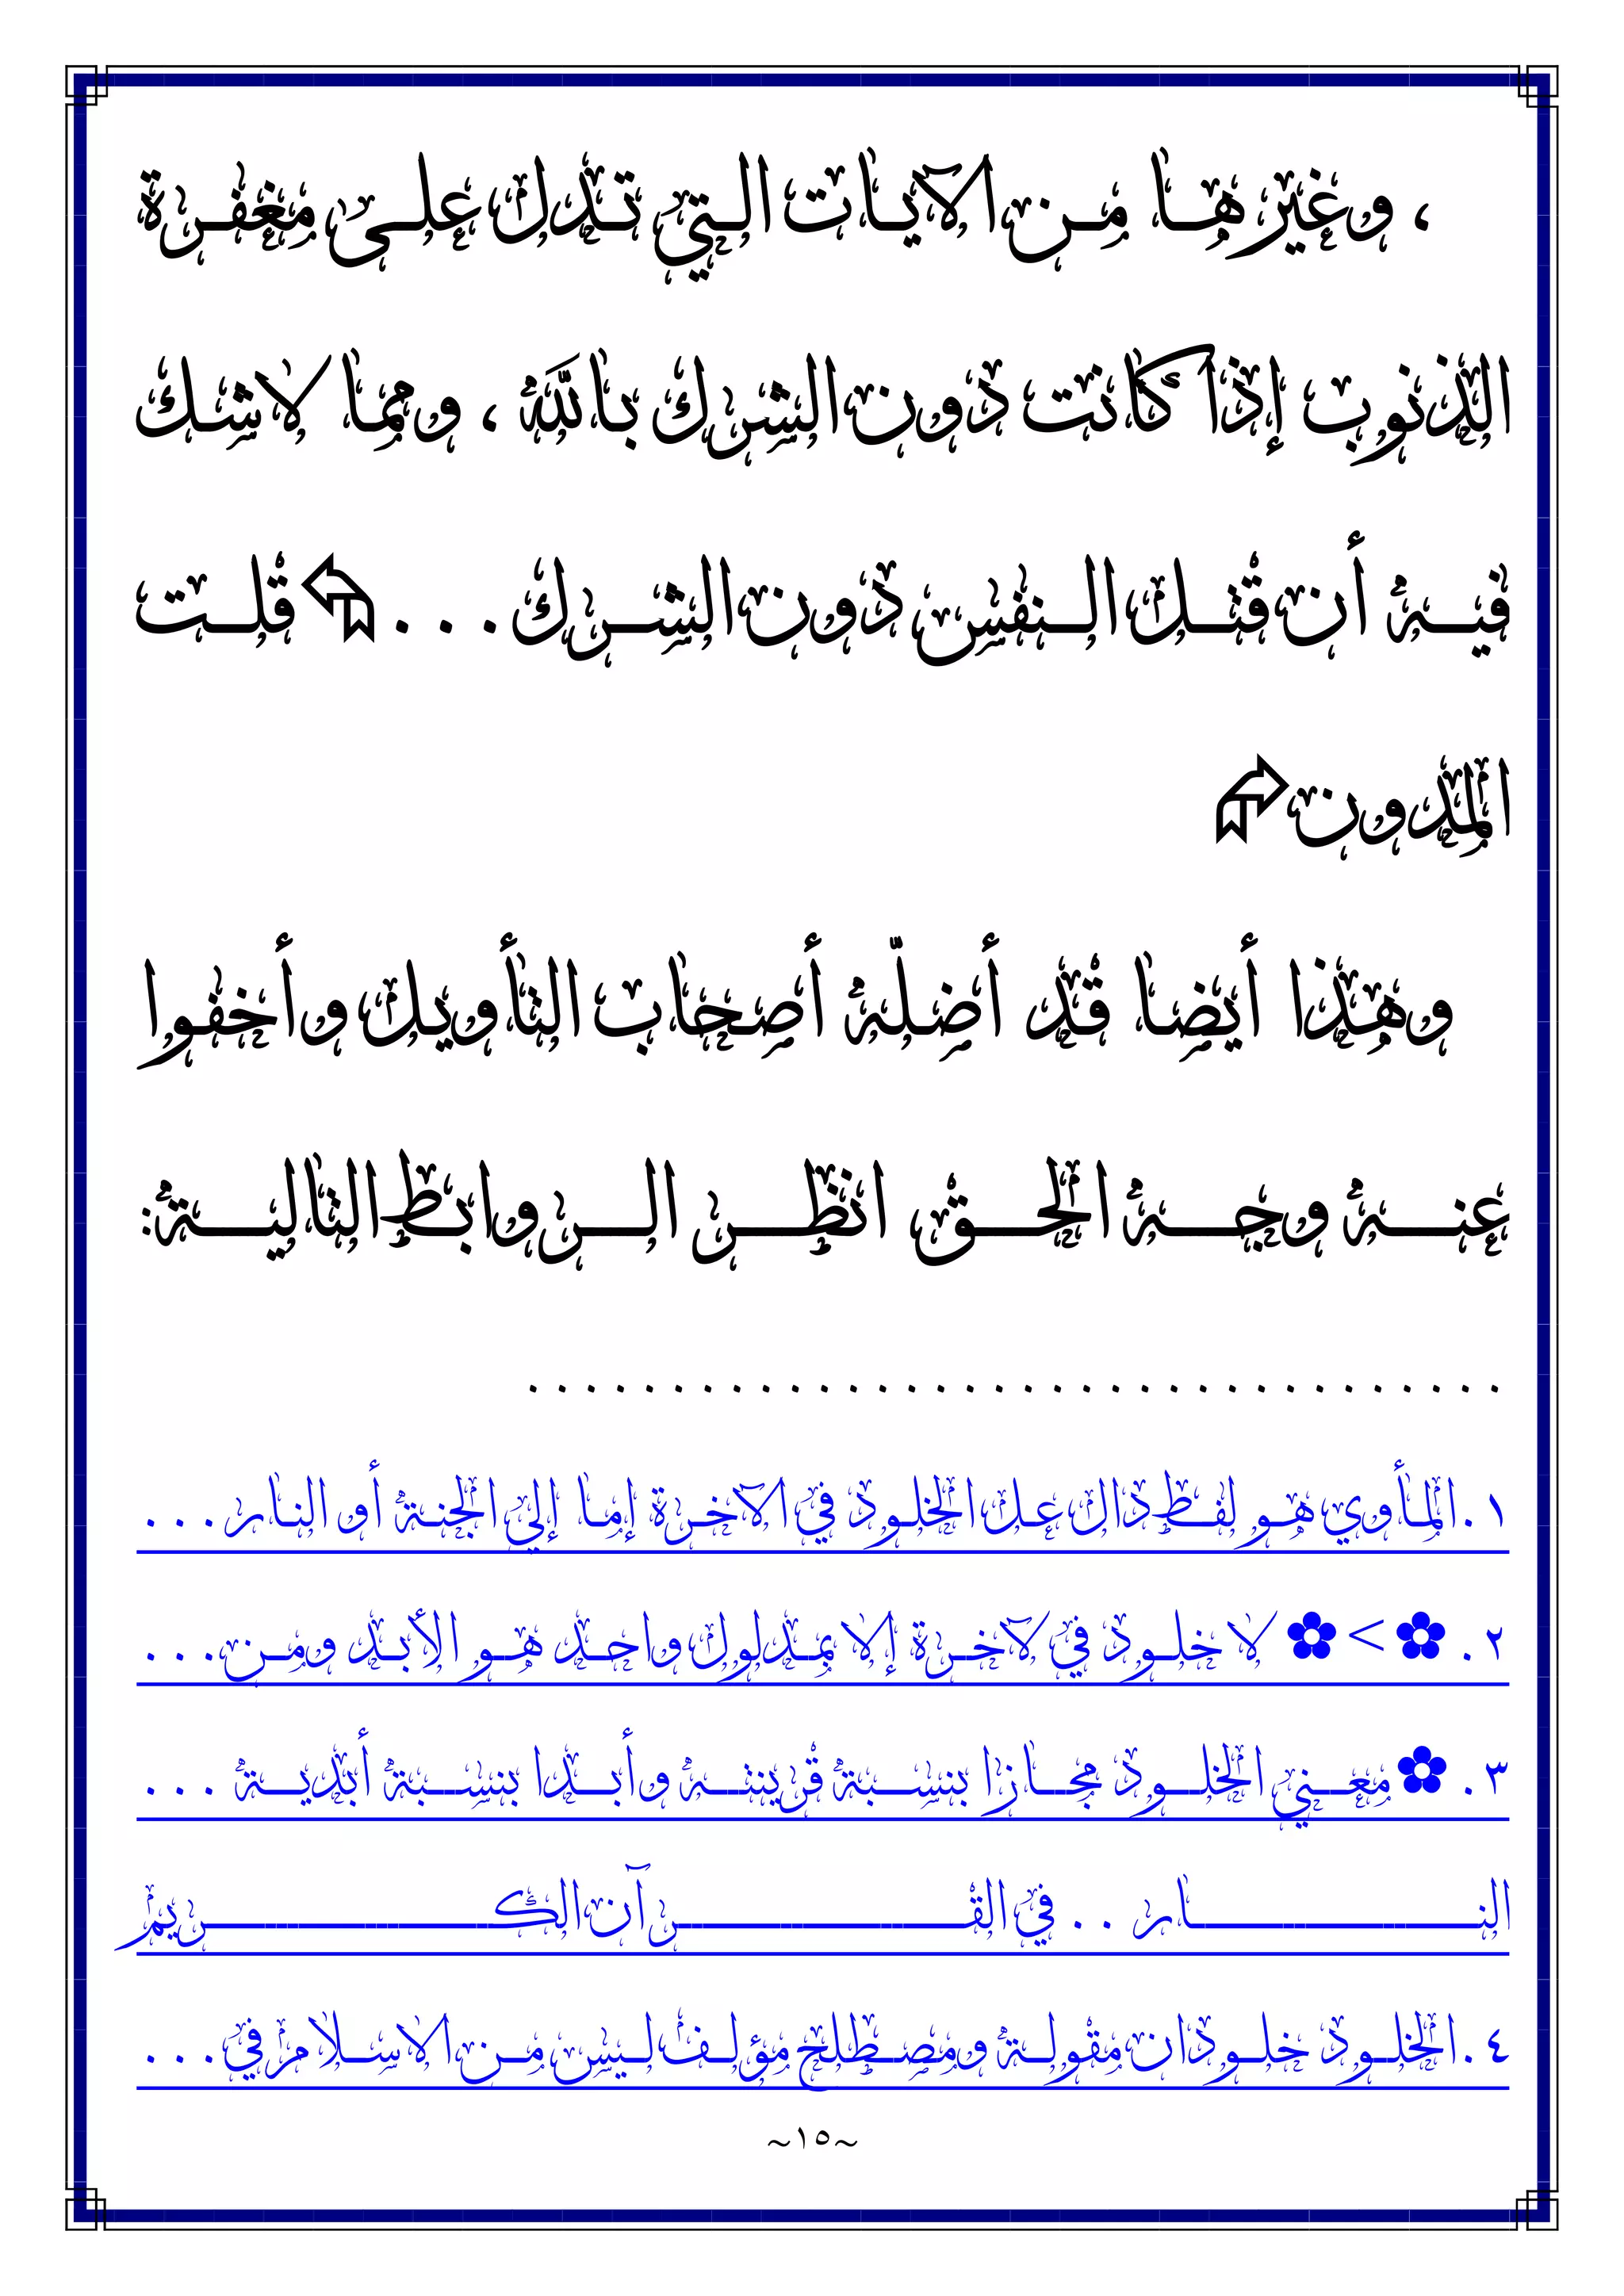 ، وغيرها من الآيات التي تدل على مغفرة
الذنوب إذا كانت دون الشرك بالله ، ومما لا شك
فيه أن قتل النفس دون الشرك... قلت
المدون
وهذا أيضا قد أضلّه أصحاب التأويل وأخفوا
عنه وجه الحق انظر الروابط التالية:
..................................
١.المأوي هو لفظ دال عل الخلود في الآخرة إما إلي الجنة أو النار...
٢. ✿ > ✿ لا خلود في لآخرة إلا بمدلول واحد هو الأبد ومن...
٣. ✿ معني الخلود مجازا بنسبة قرينته وأبدا بنسبة أبدية ...
النار .. في القرآن الكريم
٤.الخلود خلودان مقولة ومصطلح مؤلف ليس من الاسلام في...
~١٥~